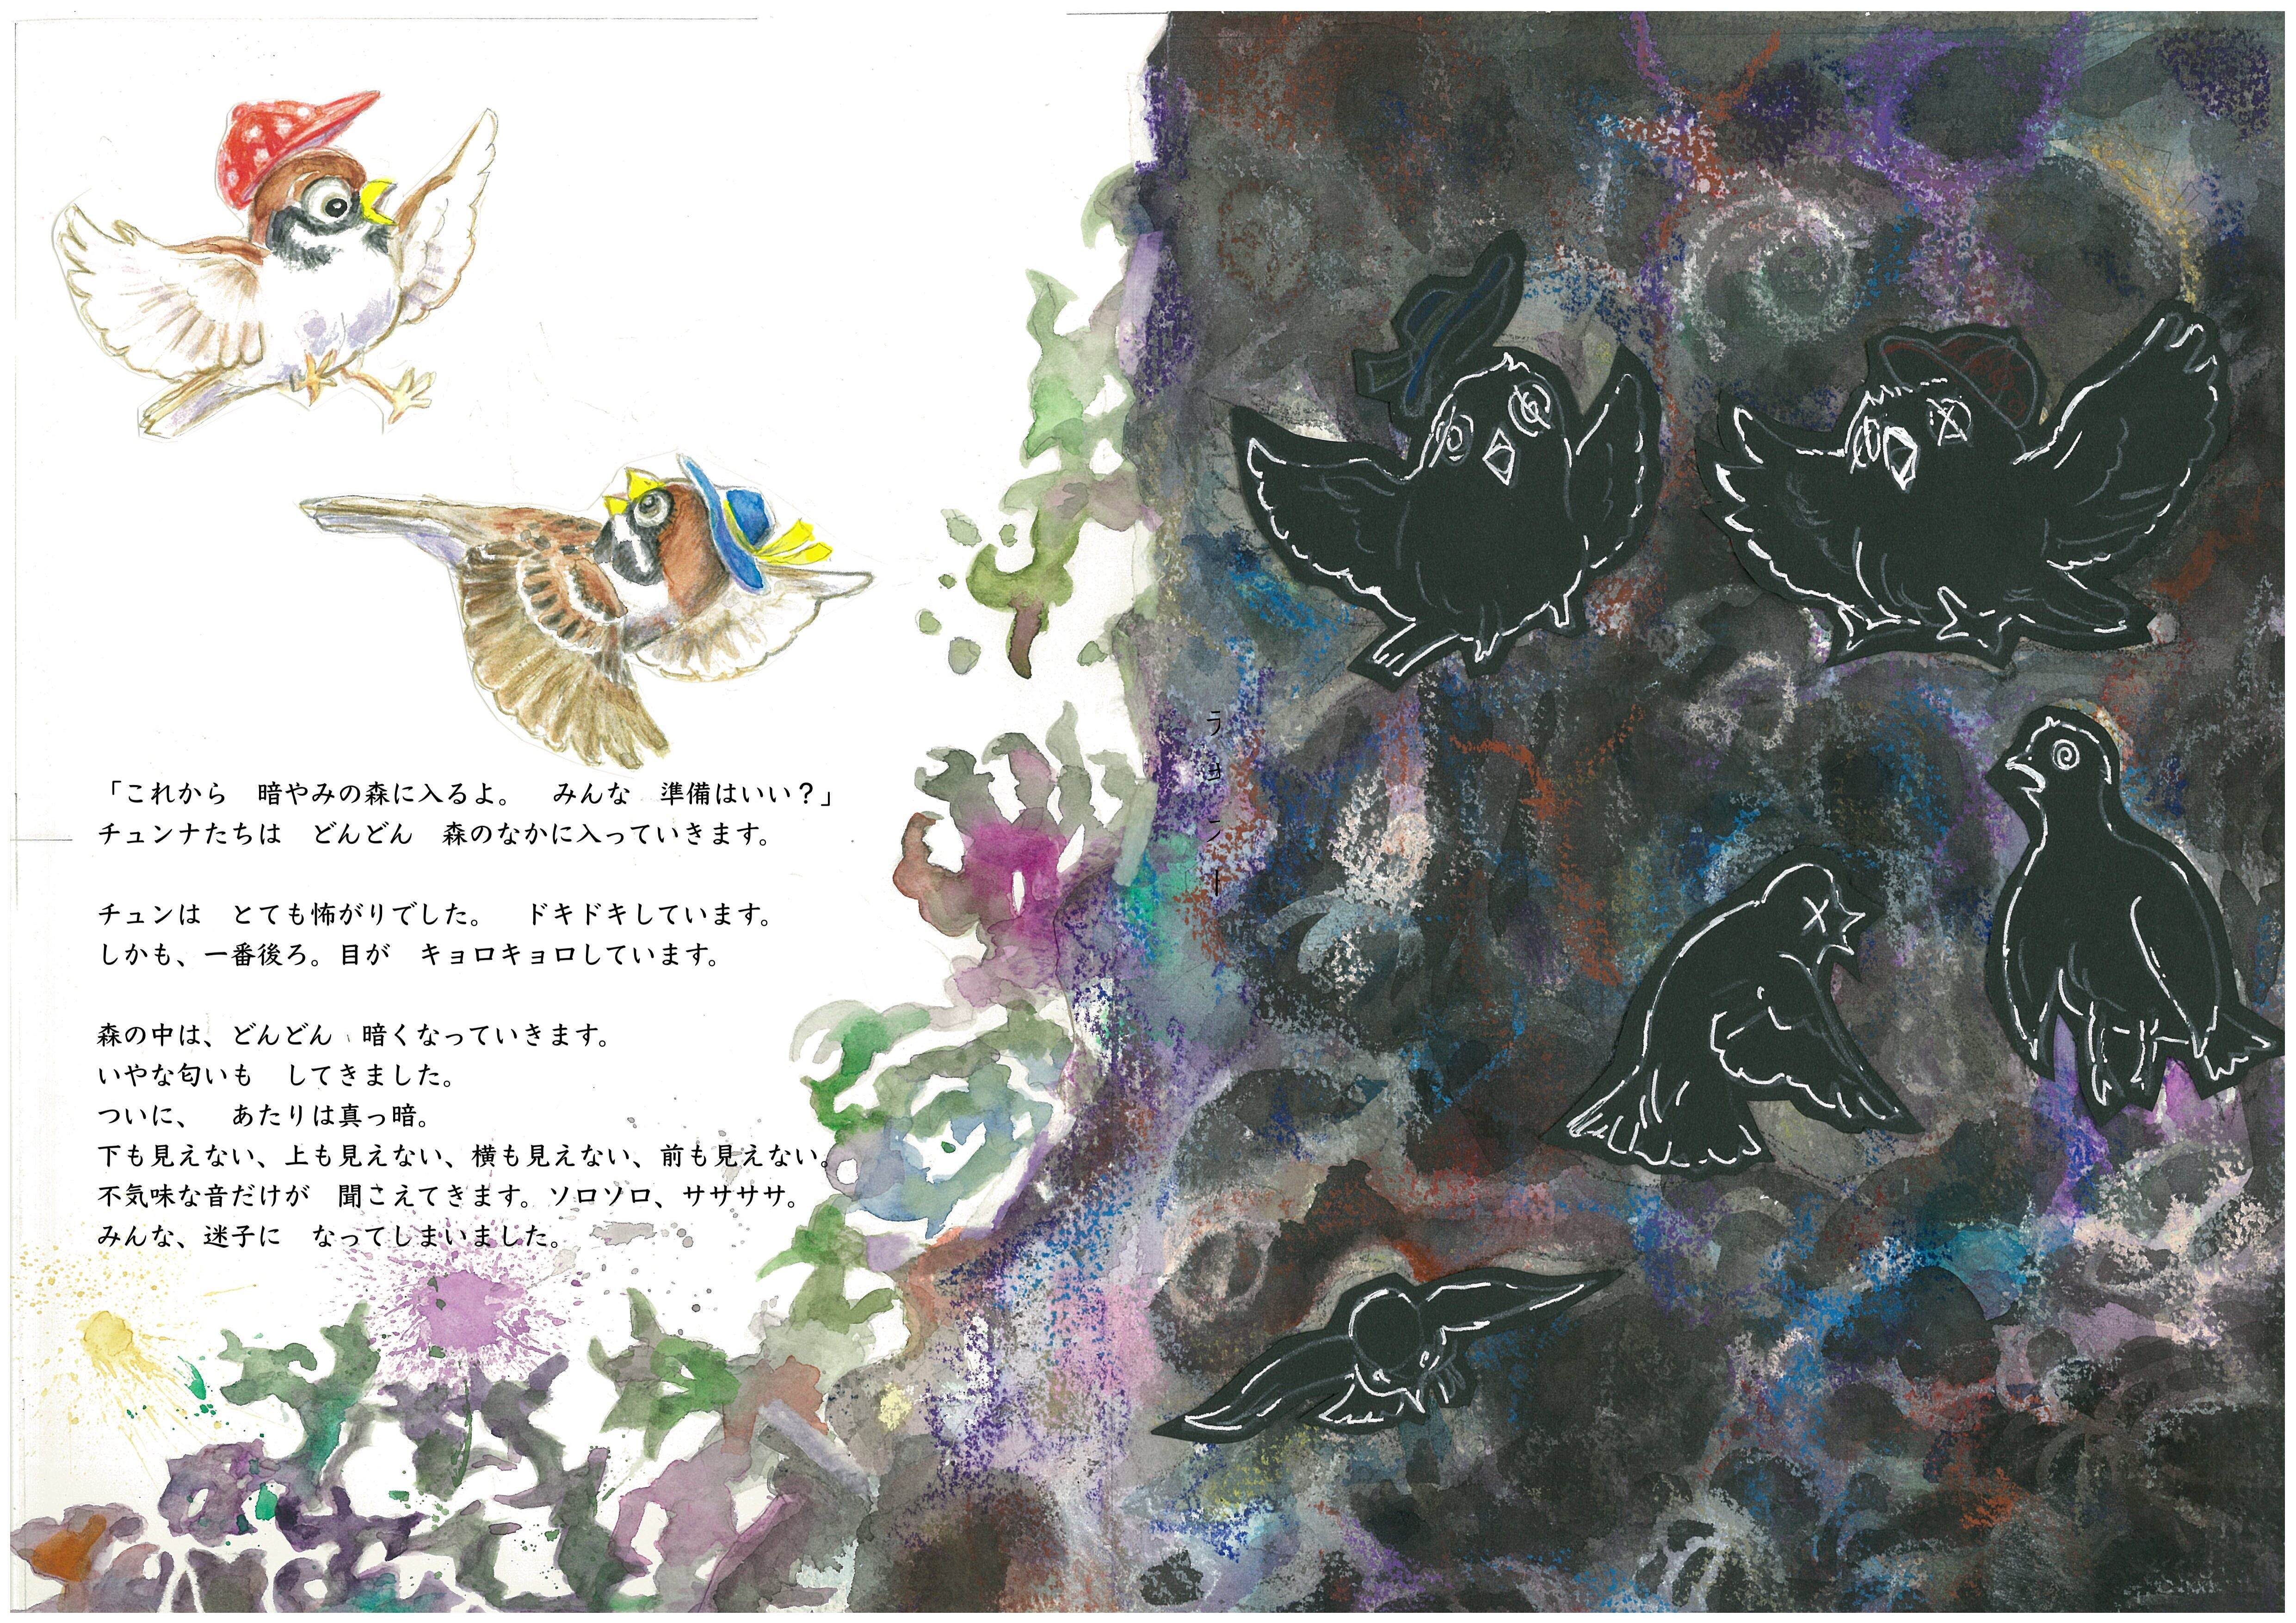 「これから　暗やみの森に入るよ。　みんな　準備はいい？」
チュンナたちは　どんどん　森のなかに入っていきます。
チュンは　とても怖がりでした。　ドキドキしています。
しかも、一番後ろ。目が　キョロキョロしています。
森の中は、どんどん　暗くなっていきます。
いやな匂いも　してきました。
ついに、　あたりは真っ暗。
下も見えない、上も見えない、横も見えない、前も見えない。
不気味な音だけが　聞こえてきます。ソロソロ、ササササ。
みんな、迷子に　なってしまいました。